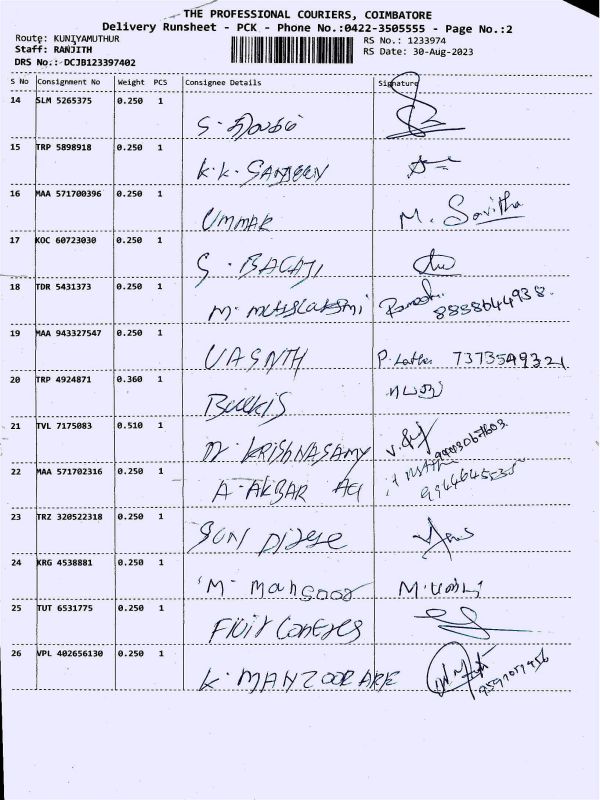 THE PROFESSIONAL COURIERS, COIMBATORE
Delivery Runsheet - PCK - Phone No.:0422-3505555 - Page No.:2
Route: KUNIYAMUTHUR
RS No.: 1233974
Staff: RANJITH
RS Date: 30-Aug-2023
DRS No.: DCJB123397402
S No Consignment No Weight PCS Consignee Details Signature
14 SLM 5265375 0.250 1
S.
15 TRP 5898918 0.250 1
K.K. SANJEEV
16 MAA 571700396 0.250 1
UMMAR M. Savitha
17 KOC 60723030 0.250 1
S. BALAJI
18 TDR 5431373 0.250 1
M. 8838644938.
19 MAA 943327547 0.250 1
VASNTH P. Latha 7373549321
20 TRP 4924871 0.360 1
Bulkis
21 TVL 7175083 0.510 1
KRISHNASAMY
22 MAA 571702316 0.250 1
A. AKBAR
23 TRZ 320522318 0.250 1
SUN
24 KRG 4538881 0.250 1
M. Mansoor
25 TUT 6531775 0.250 1
26 VPL 402656130 0.250 1
K. MANZOOR